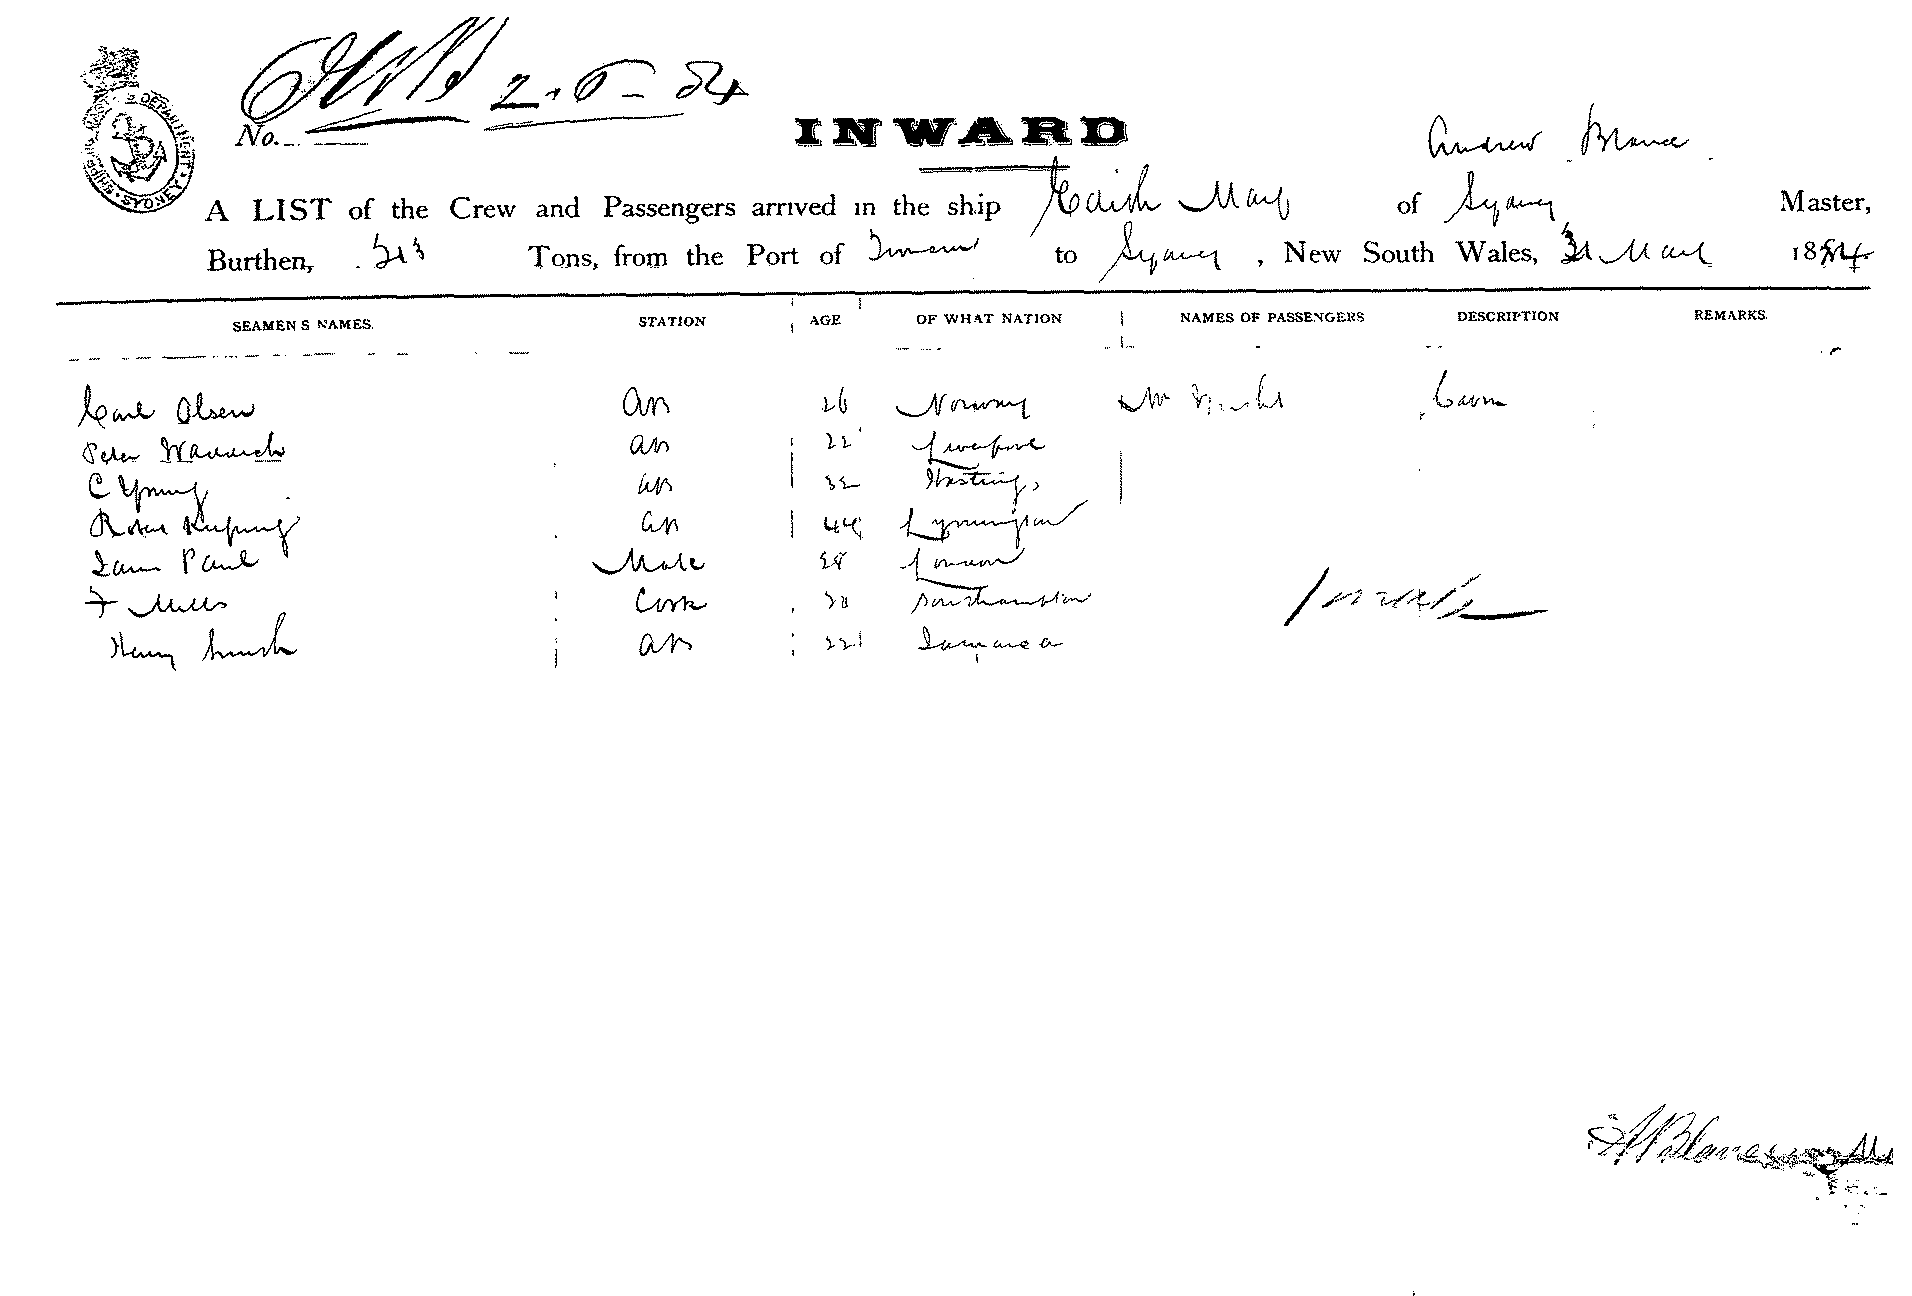 2.6-84
No.
INWARD
Andrew
SHIPPING DEPARTMENT SYDNEY
A LIST of the Crew and Passengers arrived in the ship Edith May of Sydney Master,
Burthen, Tons, from the Port of to Sydney, New South Wales, 31 May 1884
SEAMEN S NAMES. STATION AGE OF WHAT NATION NAMES OF PASSENGERS DESCRIPTION REMARKS.
Carl Olsen AB 26 Norway Mr Cabin
Peter AB 22 Liverpool
C Young AB 32 Hastings
Robert AB 44 Lymington
Paul Mate 28 London
F Mills Cook 30 Southampton
Henry Smith AB 22 Jamaica